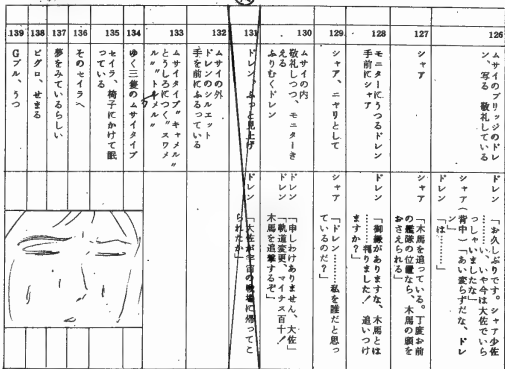 126
ムサイのブリッジのドレ
ン、写る 敬礼している
ドレン「お久しぶりです。シャア少佐
……、いや今は大佐でいら
っしゃいましたな」
シャア(背中)「あい変らずだな、ドレ
ン」
ドレン「は………」
127
シャア
シャア「木馬を追っている。丁度お前
の艦隊の位置なら、木馬の頭を
おさえられる」
128
モニターにうつるドレン
手前にシャア
ドレン「御縁がありますな、木馬とは
……判りました！ 追いつけ
ますか？」
129
シャア、ニヤリとして
シャア「ドレン……私を誰だと思っ
ているのだ？」
130
ムサイの内
敬礼しつつ、モニターき
える
ふりむくドレン
ドレン「申しわけありません、大佐」
ドレン「軌道変更、マイナス百十！
木馬を追撃するぞ」
131
ドレン、ふっと見上げ
ドレン「大佐が宇宙の戦場に帰ってこ
られたか」
132
ムサイの外
ドレンのシルエット
手を前にふるっている
133
ムサイタイプ“キャメル”
とうしろにつく“スワメ
ル”“トクメル”
134
ゆく三隻のムサイタイプ
135
セイラ、椅子にかけて眠
っている
136
そのセイラへ
137
夢をみているらしい
138
ビグロ、せまる
139
Gブル、うつ